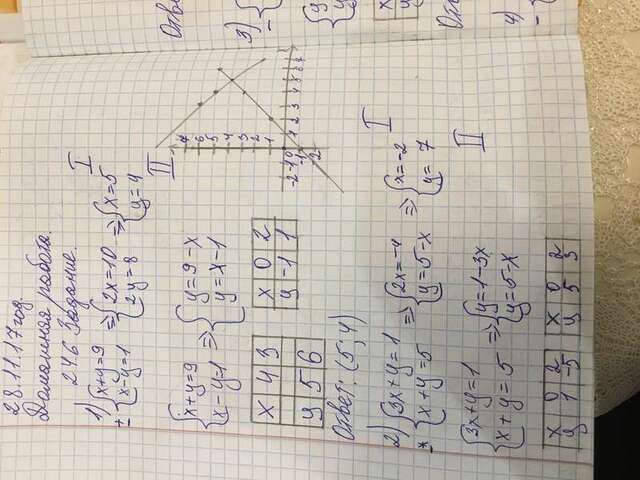 28.11.17 год
Домашняя работа.
246 Задание.
I
1) ± {x+y=9 x-y=1 => {2x=10 2y=8 => {x=5 y=4
II
{x+y=9 x-y=1 => {y=9-x y=x-1
x 4 3
y 5 6
x 0 2
y -1 1
-2 -1 0 1 2 3 4 5 6 7
Ответ: (5; 4)
I
2) - {3x+y=1 x+y=5 => {2x=-4 y=5-x => {x=-2 y=7
II
{3x+y=1 x+y=5 => {y=1-3x y=5-x
x 0 2
y 1 -5
x 0 2
y 5 3
Отве
3)
4)